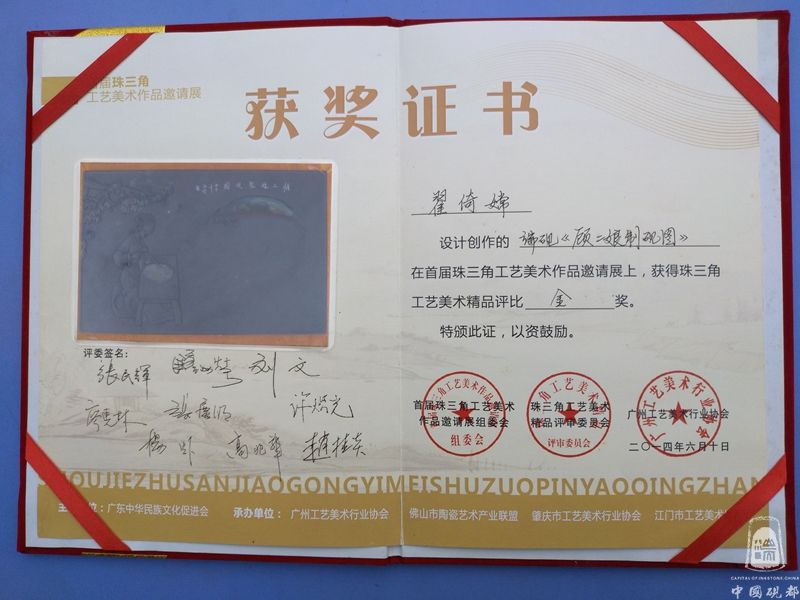 首届珠三角
工艺美术作品邀请展
获奖证书
翟倚嫦
设计创作的 端砚《顾二娘制砚图》
在首届珠三角工艺美术作品邀请展上，获得珠三角
工艺美术精品评比 金 奖。
特颁此证，以资鼓励。
评委签名：
张民辉
刘文
高兆华
首届珠三角工艺美术
作品邀请展组委会
组委会
珠三角工艺美术
精品评审委员会
评审委员会
广州工艺美术行业协会
广州工艺美术行业协会
二〇一四年六月十日
SHOUJIEZHUSANJIAOGONGYIMEISHUZUOPINYAOQINGZHAN
位：广东中华民族文化促进会
承办单位：广州工艺美术行业协会 佛山市陶瓷艺术产业联盟 肇庆市工艺美术行业协会 江门市工艺美术
CAPITAL OF INKSTONE, CHINA
中國硯都